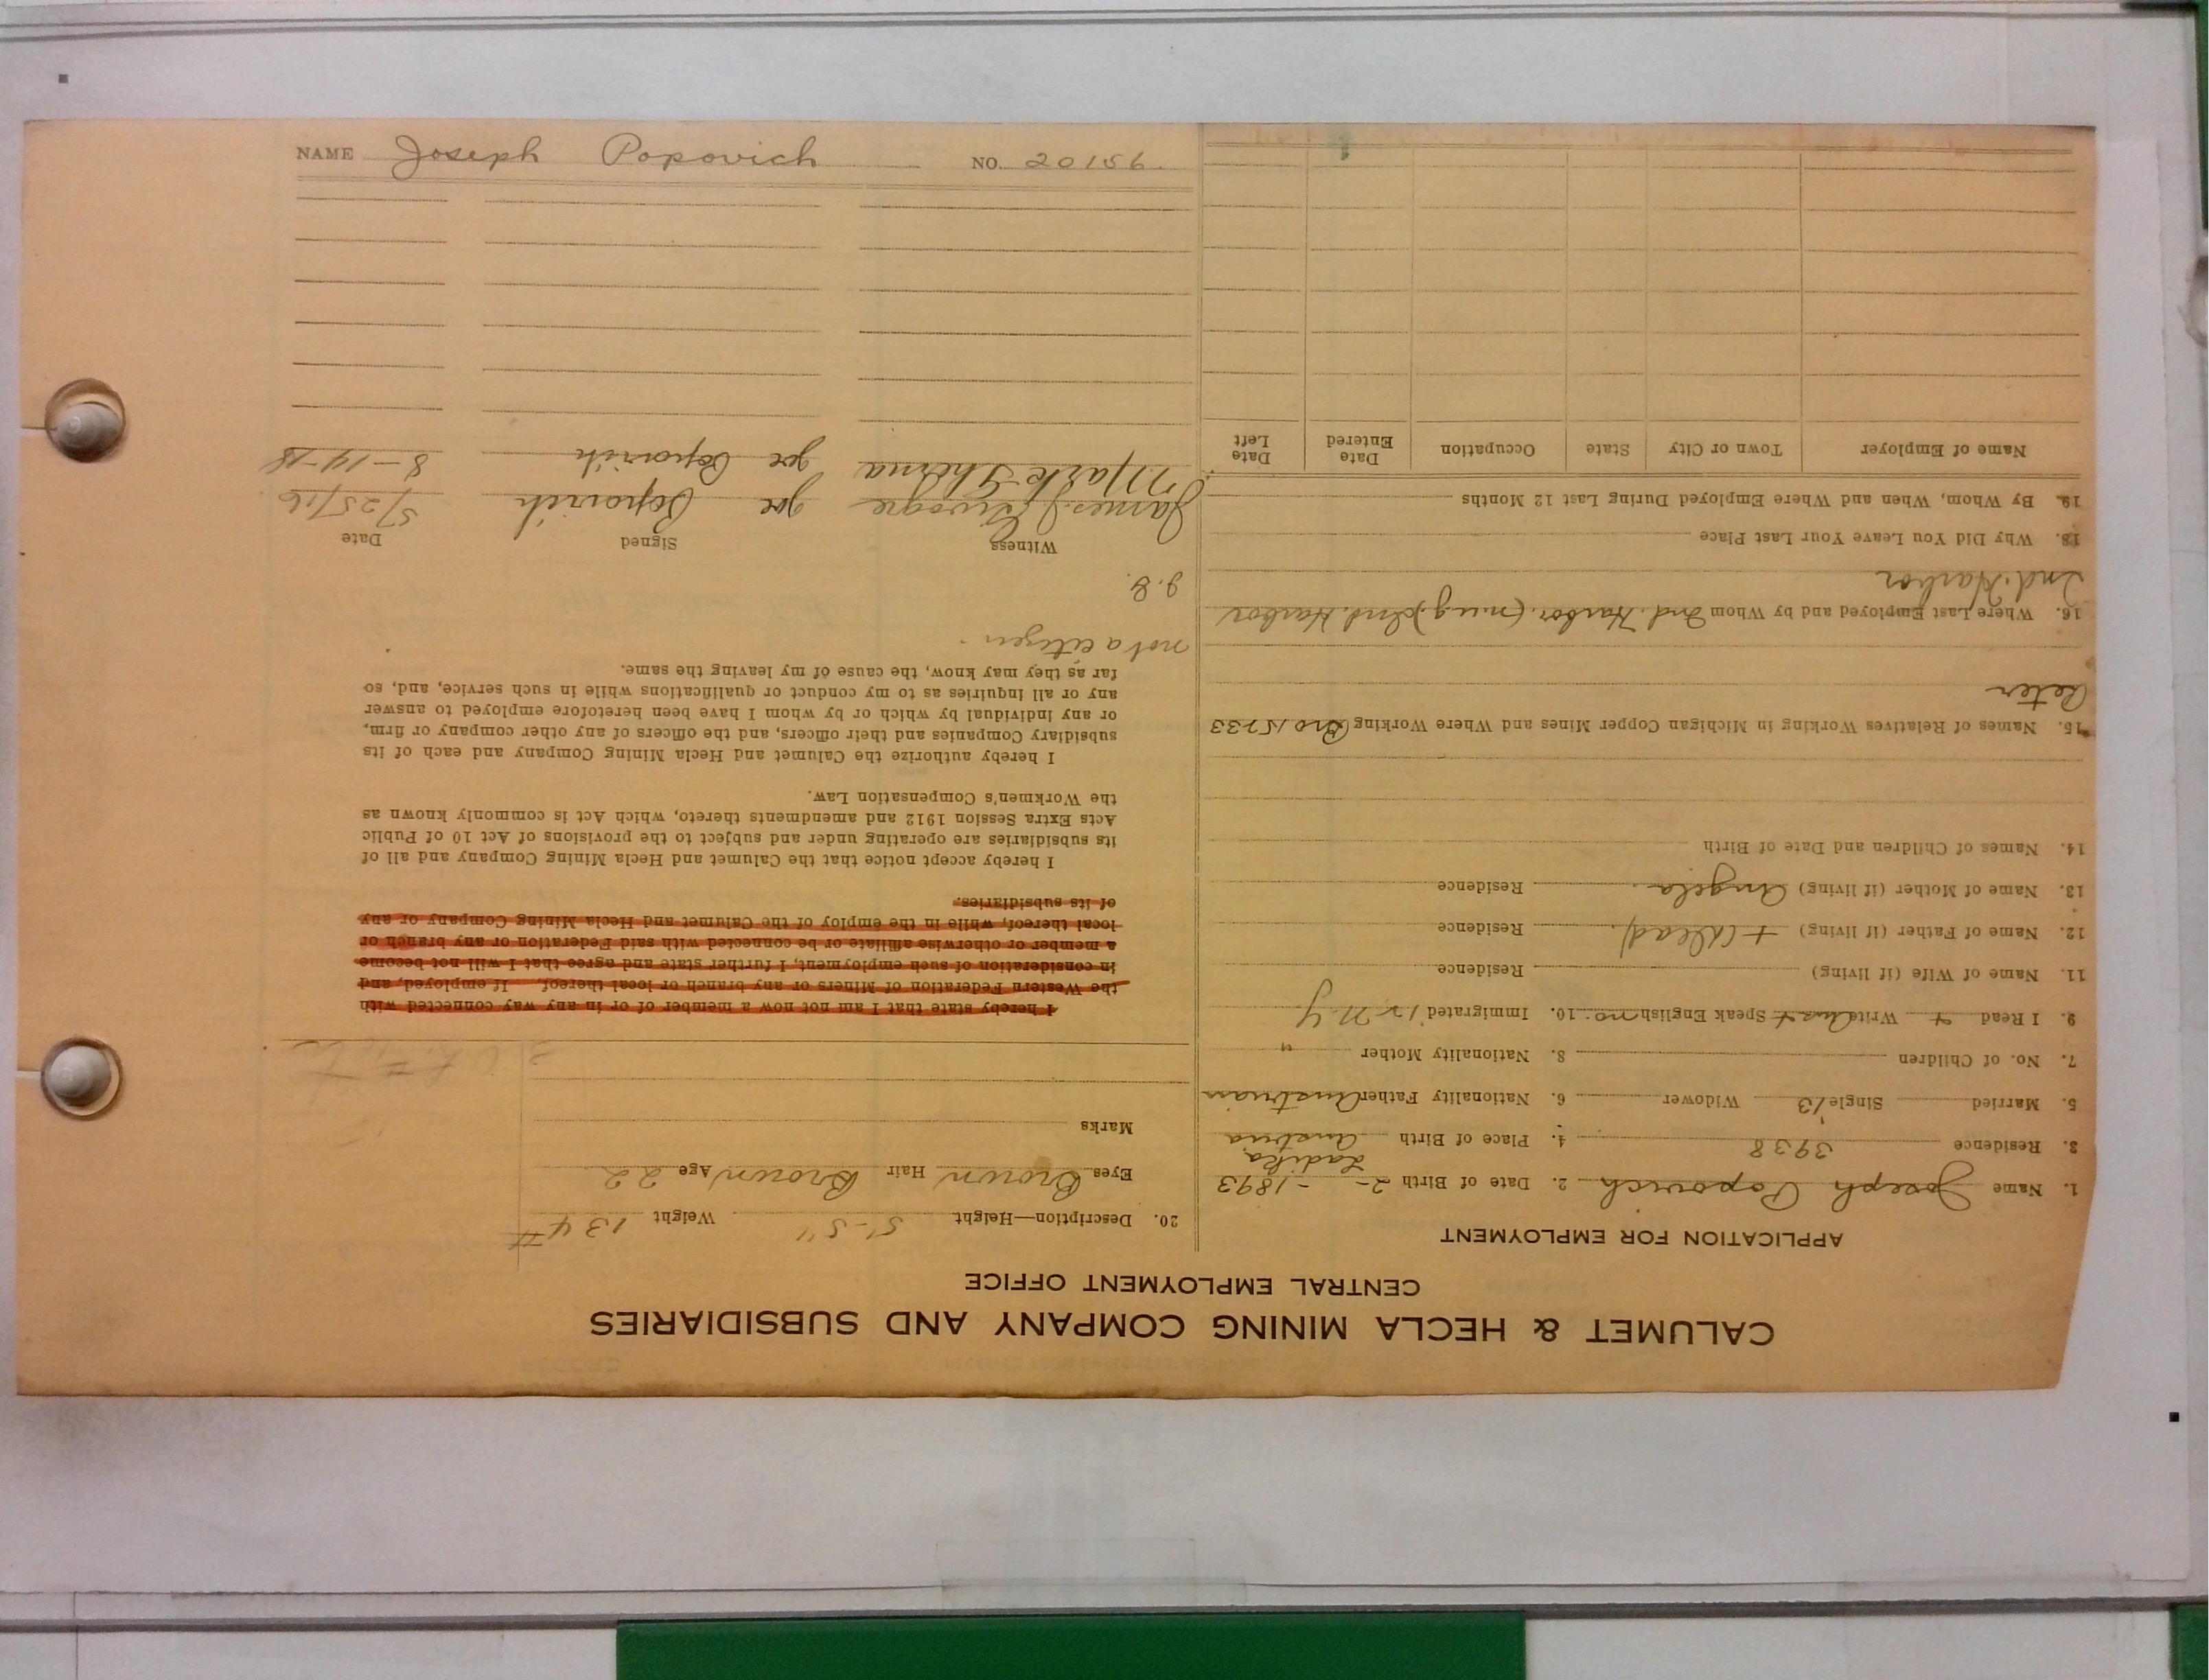 CALUMET & HECLA MINING COMPANY AND SUBSIDIARIES
CENTRAL EMPLOYMENT OFFICE
APPLICATION FOR EMPLOYMENT
1. Name Joseph Popovich 2. Date of Birth 2- -1893
3. Residence 3938 4. Place of Birth Austria Ladika
5. Married Single 13 Widower 6. Nationality Father Austrian
7. No. of Children 8. Nationality Mother "
9. I Read + Write Aust Speak English no 10. Immigrated 12 N.Y
11. Name of Wife (if living) Residence
12. Name of Father (if living) + (dead) Residence
13. Name of Mother (if living) Angela Residence
14. Names of Children and Date of Birth
15. Names of Relatives Working in Michigan Copper Mines and Where Working Bro 15233
Peter
16. Where Last Employed and by Whom Ind. Harbor (n.u.g.) Ind. Harbor
Ind. Harbor
18. Why Did You Leave Your Last Place
19. By Whom, When and Where Employed During Last 12 Months
Name of Employer Town or City State Occupation Date Entered Date Left
20. Description—Height 5'-5" Weight 134#
Eyes Brown Hair Brown Age 22
Marks
I hereby state that I am not now a member of or in any way connected with
the Western Federation of Miners or any branch or local thereof. If employed, and
in consideration of such employment, I further state and agree that I will not become
a member or otherwise affiliate or be connected with said Federation or any branch or
local thereof, while in the employ of the Calumet and Hecla Mining Company or any
of its subsidiaries.
I hereby accept notice that the Calumet and Hecla Mining Company and all of
its subsidiaries are operating under and subject to the provisions of Act 10 of Public
Acts Extra Session 1912 and amendments thereto, which Act is commonly known as
the Workmen's Compensation Law.
I hereby authorize the Calumet and Hecla Mining Company and each of its
subsidiary Companies and their officers, and the officers of any other company or firm,
or any individual by which or by whom I have been heretofore employed to answer
any or all inquiries as to my conduct or qualifications while in such service, and, so
far as they may know, the cause of my leaving the same.
not a citizen.
Witness Signed Date
James J Joe Popovich 5/25/16
Mark Joe Popovich 8-14-18
NAME Joseph Popovich NO. 20156